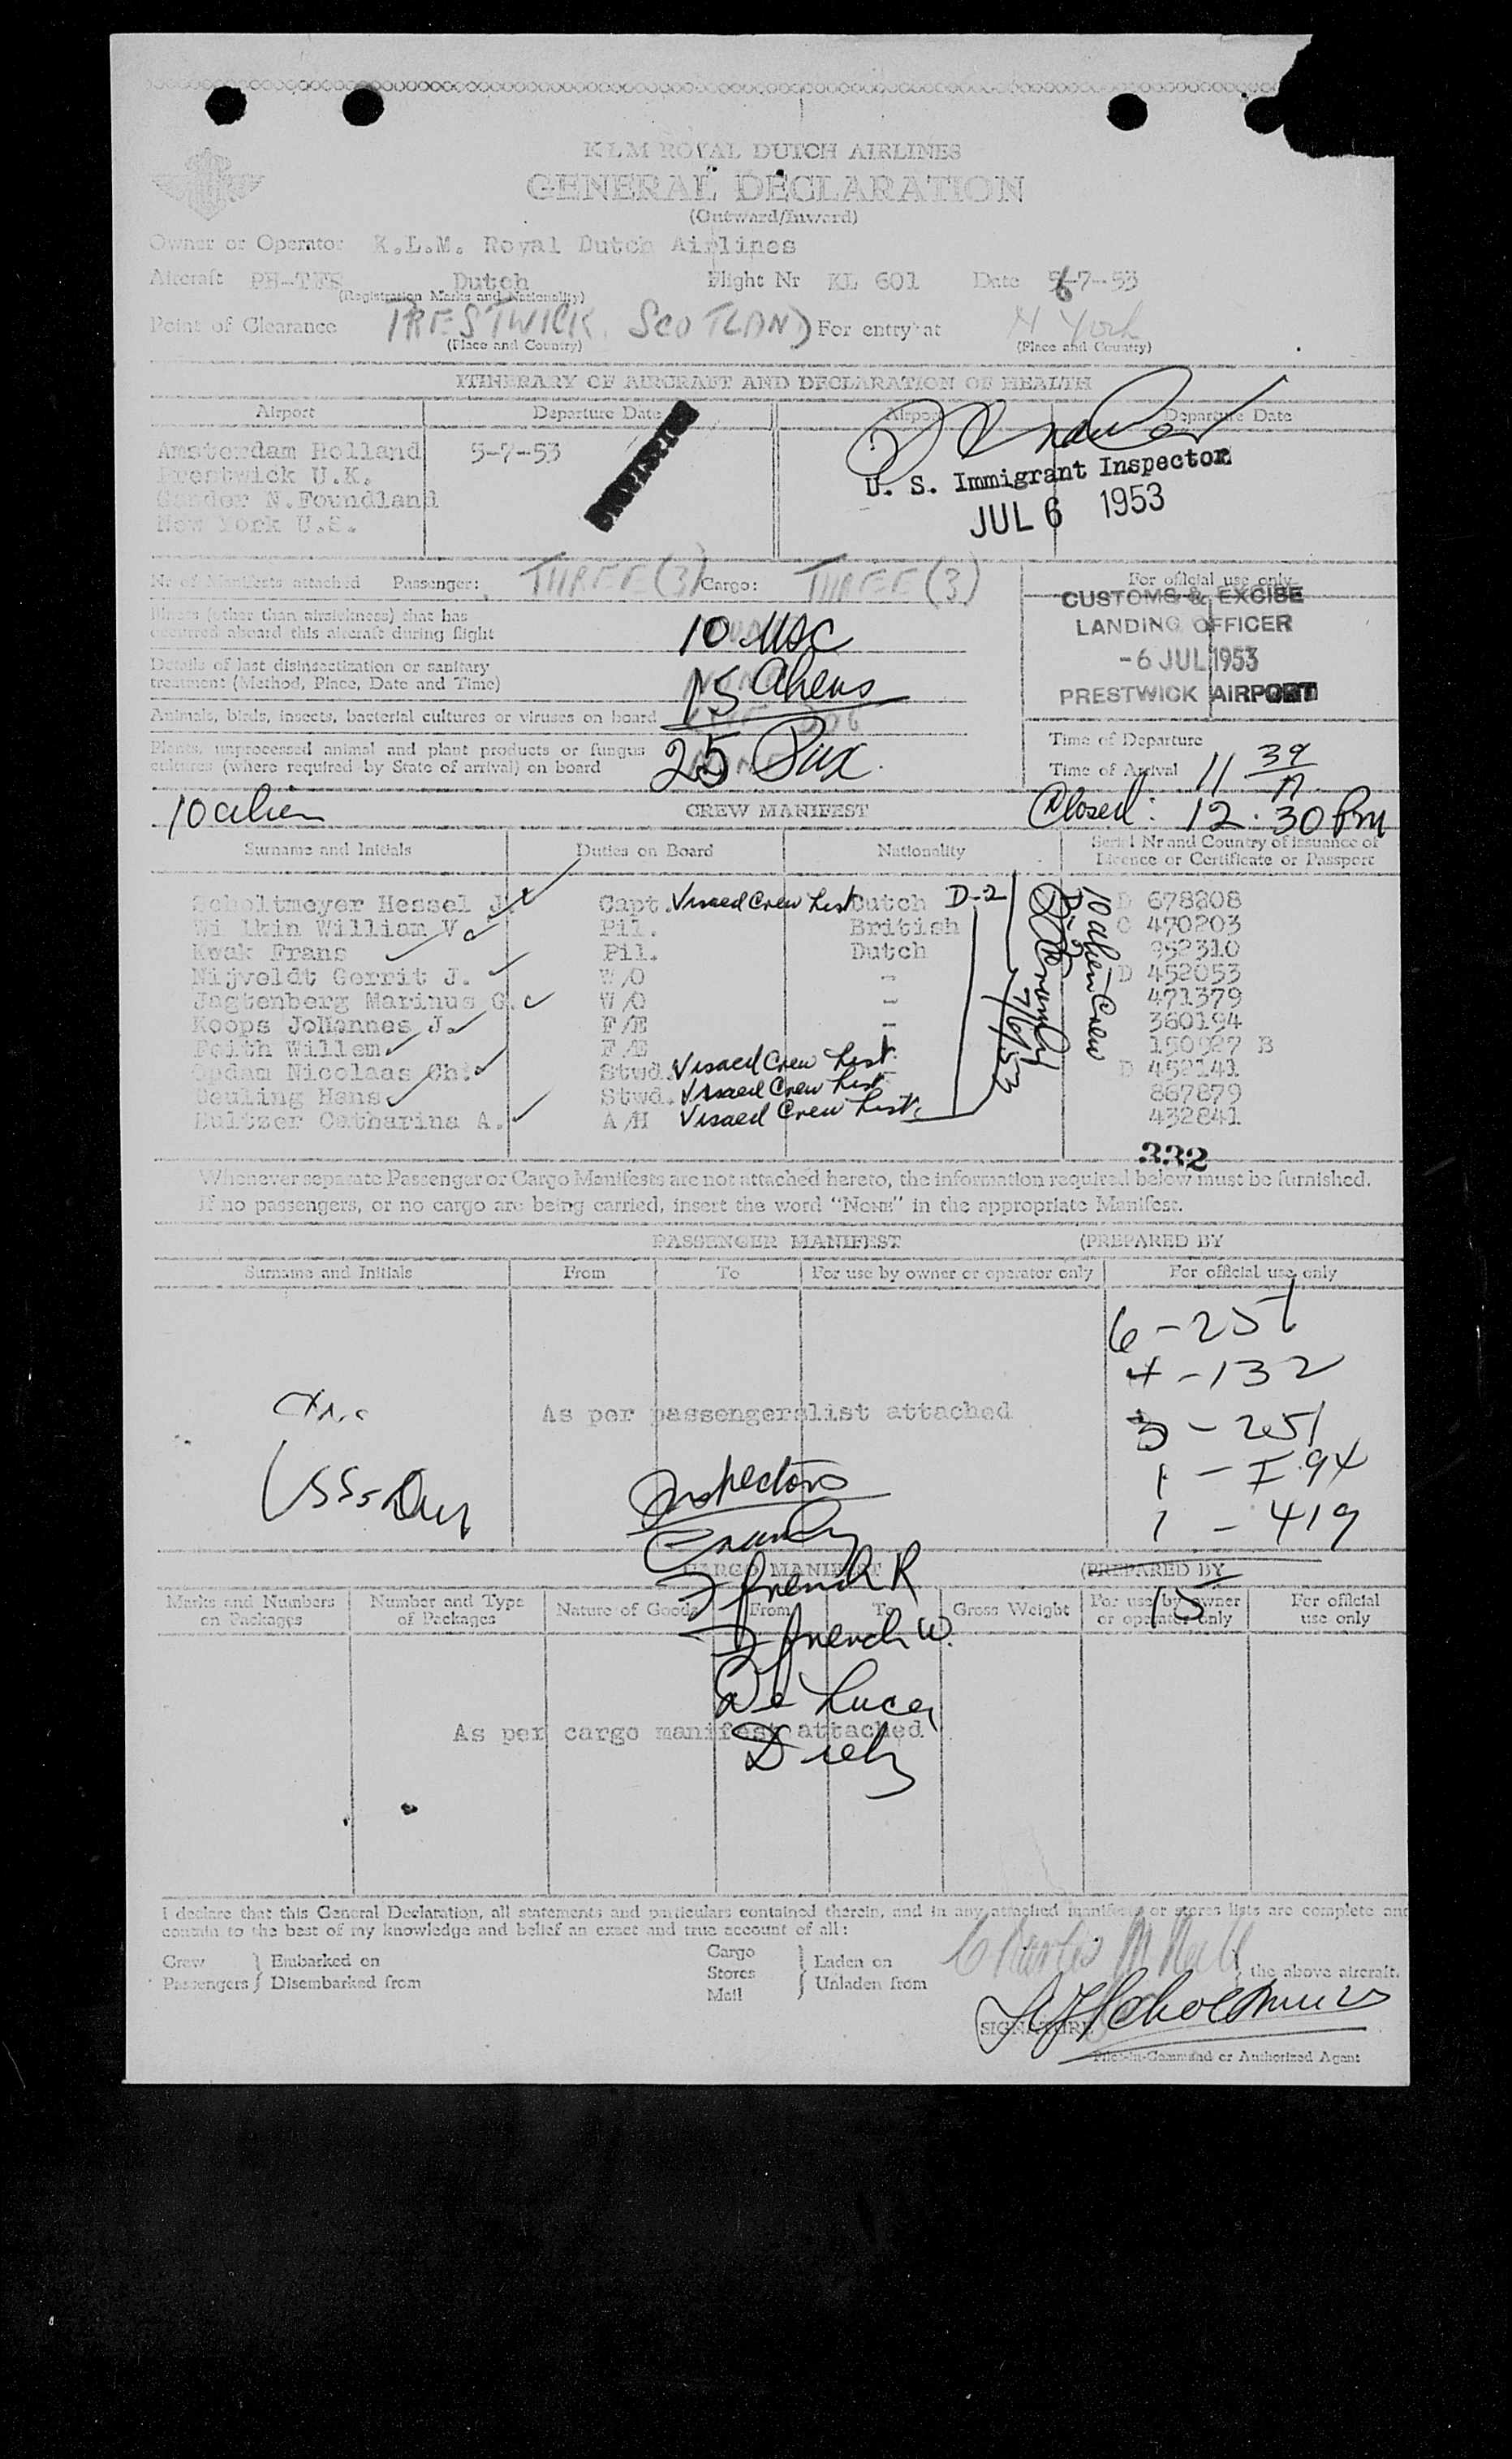 KLM ROYAL DUTCH AIRLINES
GENERAL DECLARATION
(Outward/Inward)
Owner or Operator K.L.M. Royal Dutch Airlines
Aircraft PH-TFS Dutch Flight Nr KL 601 Date 6-7-53
(Registration Marks and Nationality)
Point of Clearance PRESTWICK, SCOTLAND For entry at N York
(Place and Country) (Place and Country)
ITINERARY OF AIRCRAFT AND DECLARATION OF HEALTH
Airport Departure Date Airport Departure Date
Amsterdam Holland 5-7-53
Prestwick U.K.
Gander N.Foundland
New York U.S.
U. S. Immigrant Inspector
JUL 6 1953
Nr of Manifests attached Passenger: THREE (3) Cargo: THREE (3)
For official use only
CUSTOMS & EXCISE
LANDING OFFICER
-6 JUL 1953
PRESTWICK AIRPORT
Illness (other than airsickness) that has
occurred aboard this aircraft during flight
10 USC
Details of last disinsectization or sanitary
treatment (Method, Place, Date and Time)
15 Aliens
Animals, birds, insects, bacterial cultures or viruses on board
Plants, unprocessed animal and plant products or fungus
cultures (where required by State of arrival) on board
25 Pax.
Time of Departure
Time of Arrival 11 39 A
10 alien CREW MANIFEST Closed: 12.30 Pm
Surname and Initials Duties on Board Nationality Serial Nr and Country of issuance of
Licence or Certificate or Passport
Scholtmeyer Hessel J. Capt. Visaed Crew List Dutch D-2 D 678208
Wilkin William V. Pil. British C 470203
Kwak Frans Pil. Dutch 952310
Nijveldt Gerrit J. W/O - D 452053
Jagtenberg Marinus G. W/O - 471379
Koops Johannes J. F/E - 360194
Feith Willem F/E 150927 B
Opdam Nicolaas Ch. Stwd. Visaed Crew List D 452141
Deuling Hans Stwd. Visaed Crew List 867879
Bultzer Catharina A. A/H Visaed Crew List. 432841
10 alien Crew
D-2
7/6/53
332
Whenever separate Passenger or Cargo Manifests are not attached hereto, the information required below must be furnished.
If no passengers, or no cargo are being carried, insert the word "NONE" in the appropriate Manifest.
PASSENGER MANIFEST (PREPARED BY
Surname and Initials From To For use by owner or operator only For official use only
6 - 257
4 - 132
3 - 251
1 - I.94
1 - 419
15
As per passengerslist attached
Inspectors
Crumly
Ffrench R
Ffrench W.
De Luca
Diehy
CARGO MANIFEST (PREPARED BY
Marks and Numbers
on Packages
Number and Type
of Packages
Nature of Goods From To Gross Weight
For use by owner
or operator only
For official
use only
As per cargo manifest attached.
I declare that this General Declaration, all statements and particulars contained therein, and in any attached manifests or stores lists are complete and
contain to the best of my knowledge and belief an exact and true account of all:
Crew
Passengers
Embarked on
Disembarked from
Cargo
Stores
Mail
Laden on
Unladen from
the above aircraft.
SIGNATURE
Pilot-in-Command or Authorized Agent